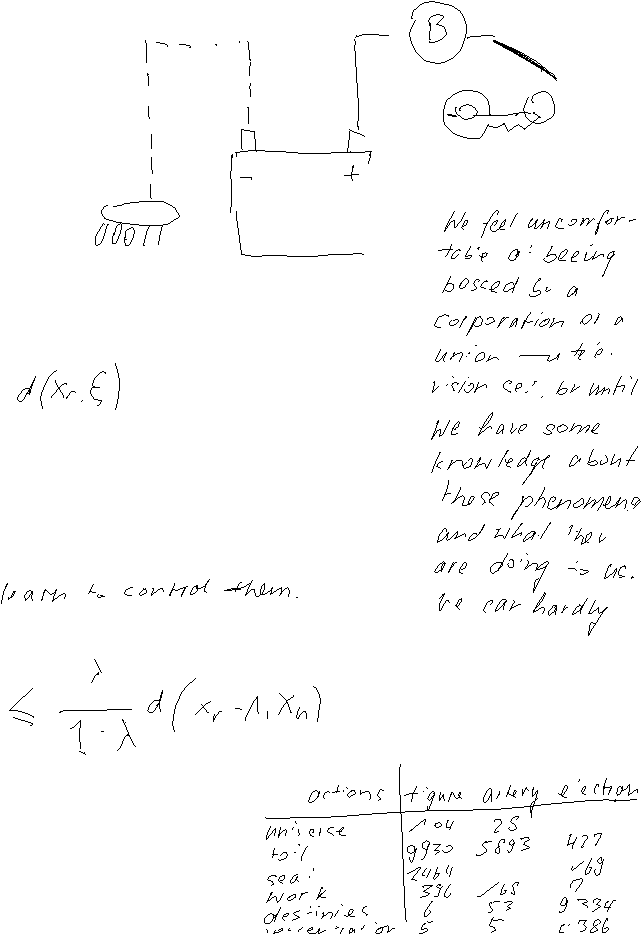 B
- +
We feel uncomfor-
at beeing
bossed by a
corporation or a
union
vision set, but until
we have some
knowledge about
these phenomena
and what they
are doing to us.
we can hardly
learn to control them.
d(x_r, ξ)
≤ λ/(1-λ) d(x_r-1, x_n)
actions figure artery ejection
universe 104 25
toil 9930 5893 427
seat 2464 169
work 396 165 7
destinies 6 53 9334
5 5 386